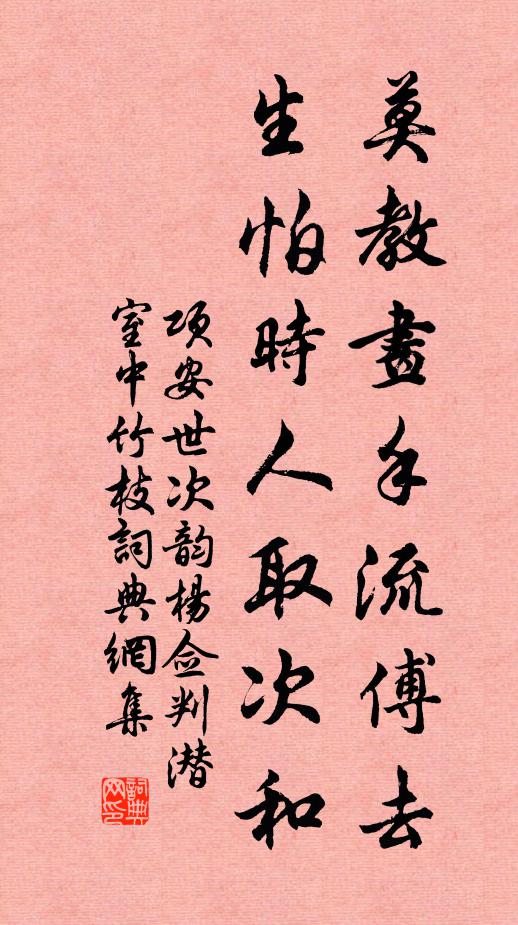 莫教畫手流傅去
生怕時人取次和
项安世次韵楊佥判潜
室中竹枝詞典網集
詞典
网印